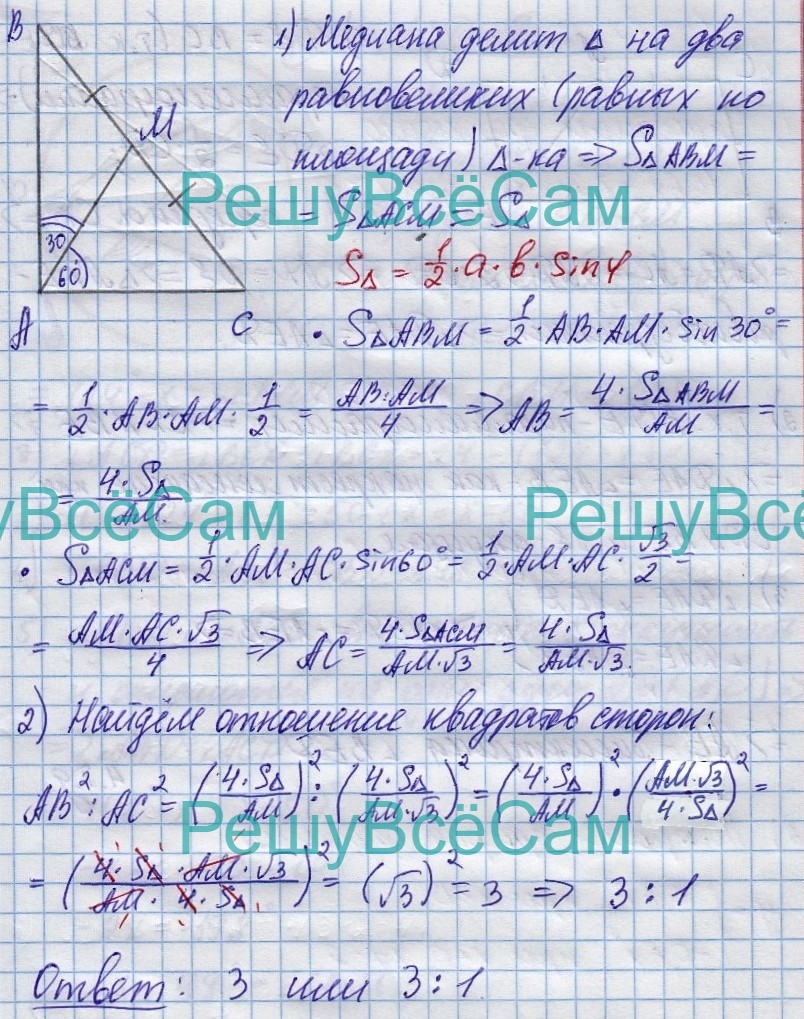 B
1) Медиана делит Δ на два
M
равновеликих (равных по
площади) Δ-ка => SΔABM =
РешуВсёСам
= SΔACM = SΔ
30
60
SΔ = 1/2 · a · b · sin φ
A
C
• SΔABM = 1/2 · AB · AM · sin 30° =
= 1/2 · AB · AM · 1/2 = AB·AM/4 => AB = 4 · SΔABM/AM =
= 4 · SΔ/AM.
уВсёСам
РешуВсё
• SΔACM = 1/2 · AM · AC · sin60° = 1/2 · AM · AC · √3/2 =
= AM · AC · √3/4 => AC = 4·SΔACM/AM·√3 = 4 · SΔ/AM·√3.
2) Найдём отношение квадратов сторон:
AB² : AC² = (4 · SΔ/AM)² : (4 · SΔ/AM·√3)² = (4 · SΔ/AM)² · (AM·√3/4 · SΔ)² =
РешуВсёСам
= (4 · SΔ · AM · √3/AM · 4 · SΔ)² = (√3)² = 3 => 3 : 1
Ответ: 3 или 3 : 1.